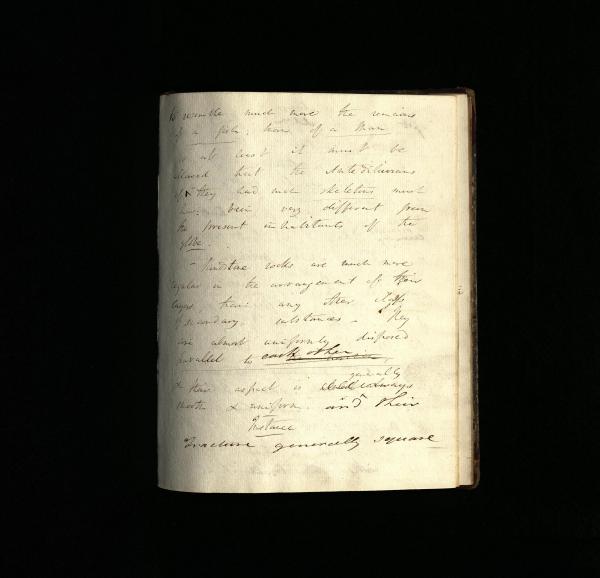 to resemble much more the remains
of a fish, than of a Man
or at least it must be
allowed that the Antediluvians
if they had such skeletons must
have been very different from
the present inhabitants of the
globe.
- Sandstone rocks are much more
regular in the arrangement of their
layers, than any other Class
of secondary substances - They
are almost uniformly disposed
parallel to each other
generally
& their aspect is always
smooth & uniform. and their
Instance
Fracture generally square